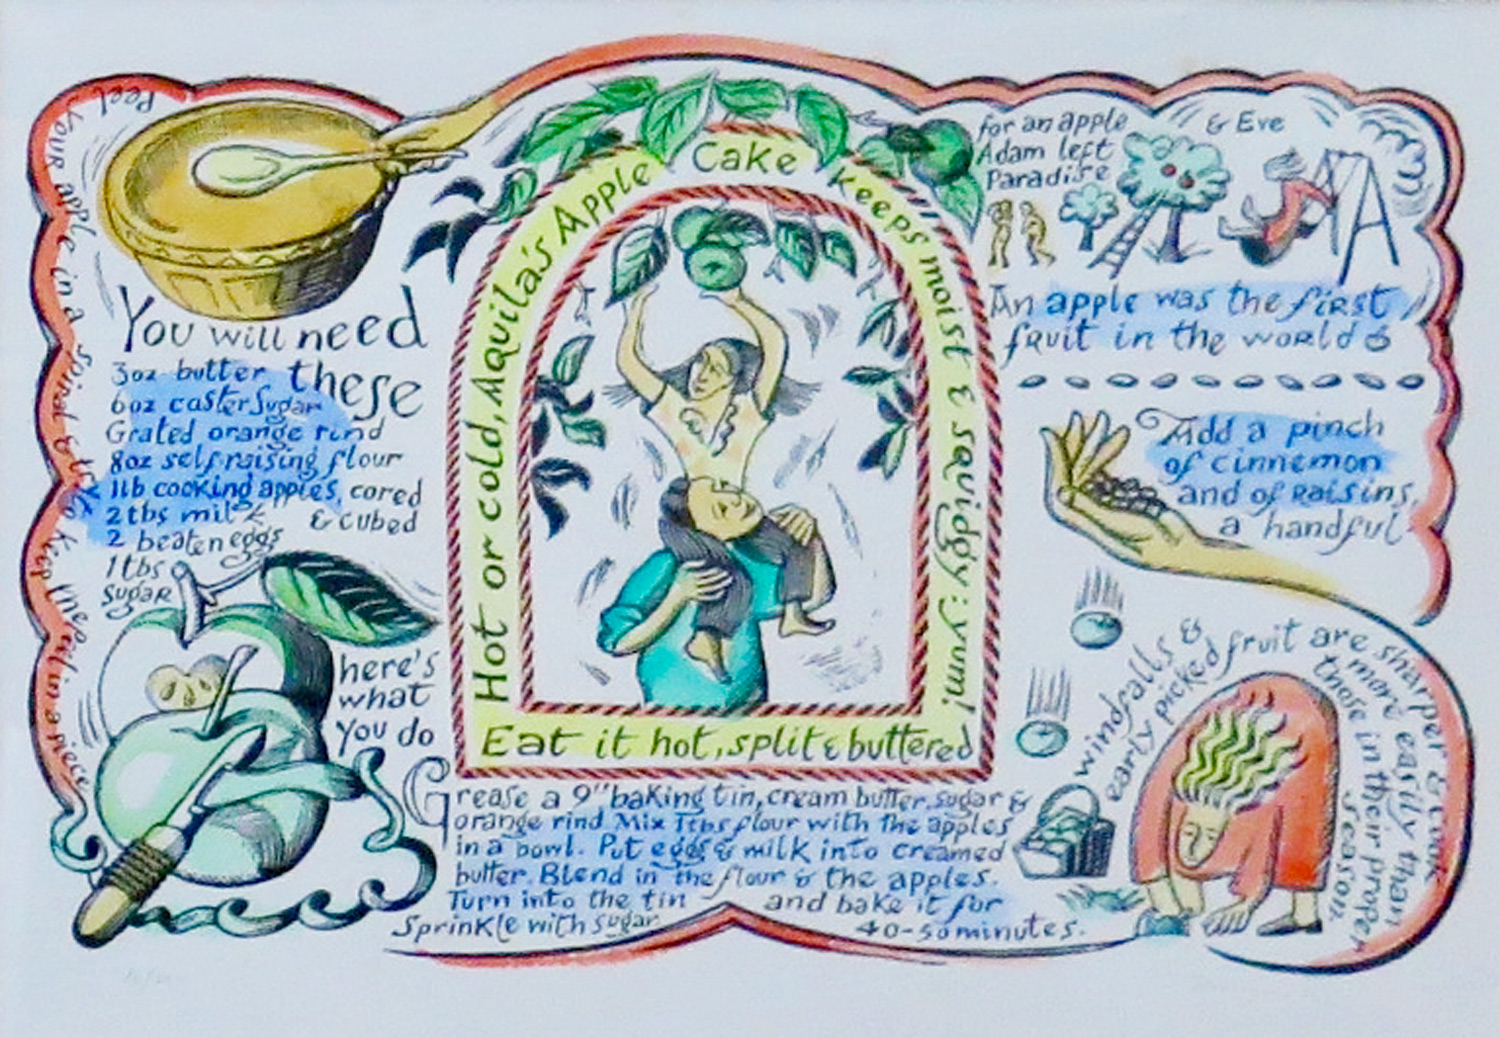 Peel your apple in a spiral & try to keep the peel in a piece
You will need
these
3oz butter
6oz caster sugar
Grated orange rind
8oz self raising flour
1lb cooking apples, cored
& cubed
2tbs milk
2 beaten eggs
1tbs
sugar
here's
what
you do
Hot or cold, Aquila's Apple Cake keeps moist & squidgy: yum!
Eat it hot, split & buttered
Grease a 9" baking tin, cream butter, sugar &
orange rind. Mix 1tbs flour with the apples
in a bowl. Put eggs & milk into creamed
butter. Blend in the flour & the apples.
Turn into the tin and bake it for
Sprinkle with sugar 40-50 minutes.
for an apple
Adam left
Paradise
& Eve
An apple was the first
fruit in the world
Add a pinch
of cinnemon
and of raisins,
a handful
windfalls &
early picked fruit are sharper & cook
more easily than
those in their proper
season.